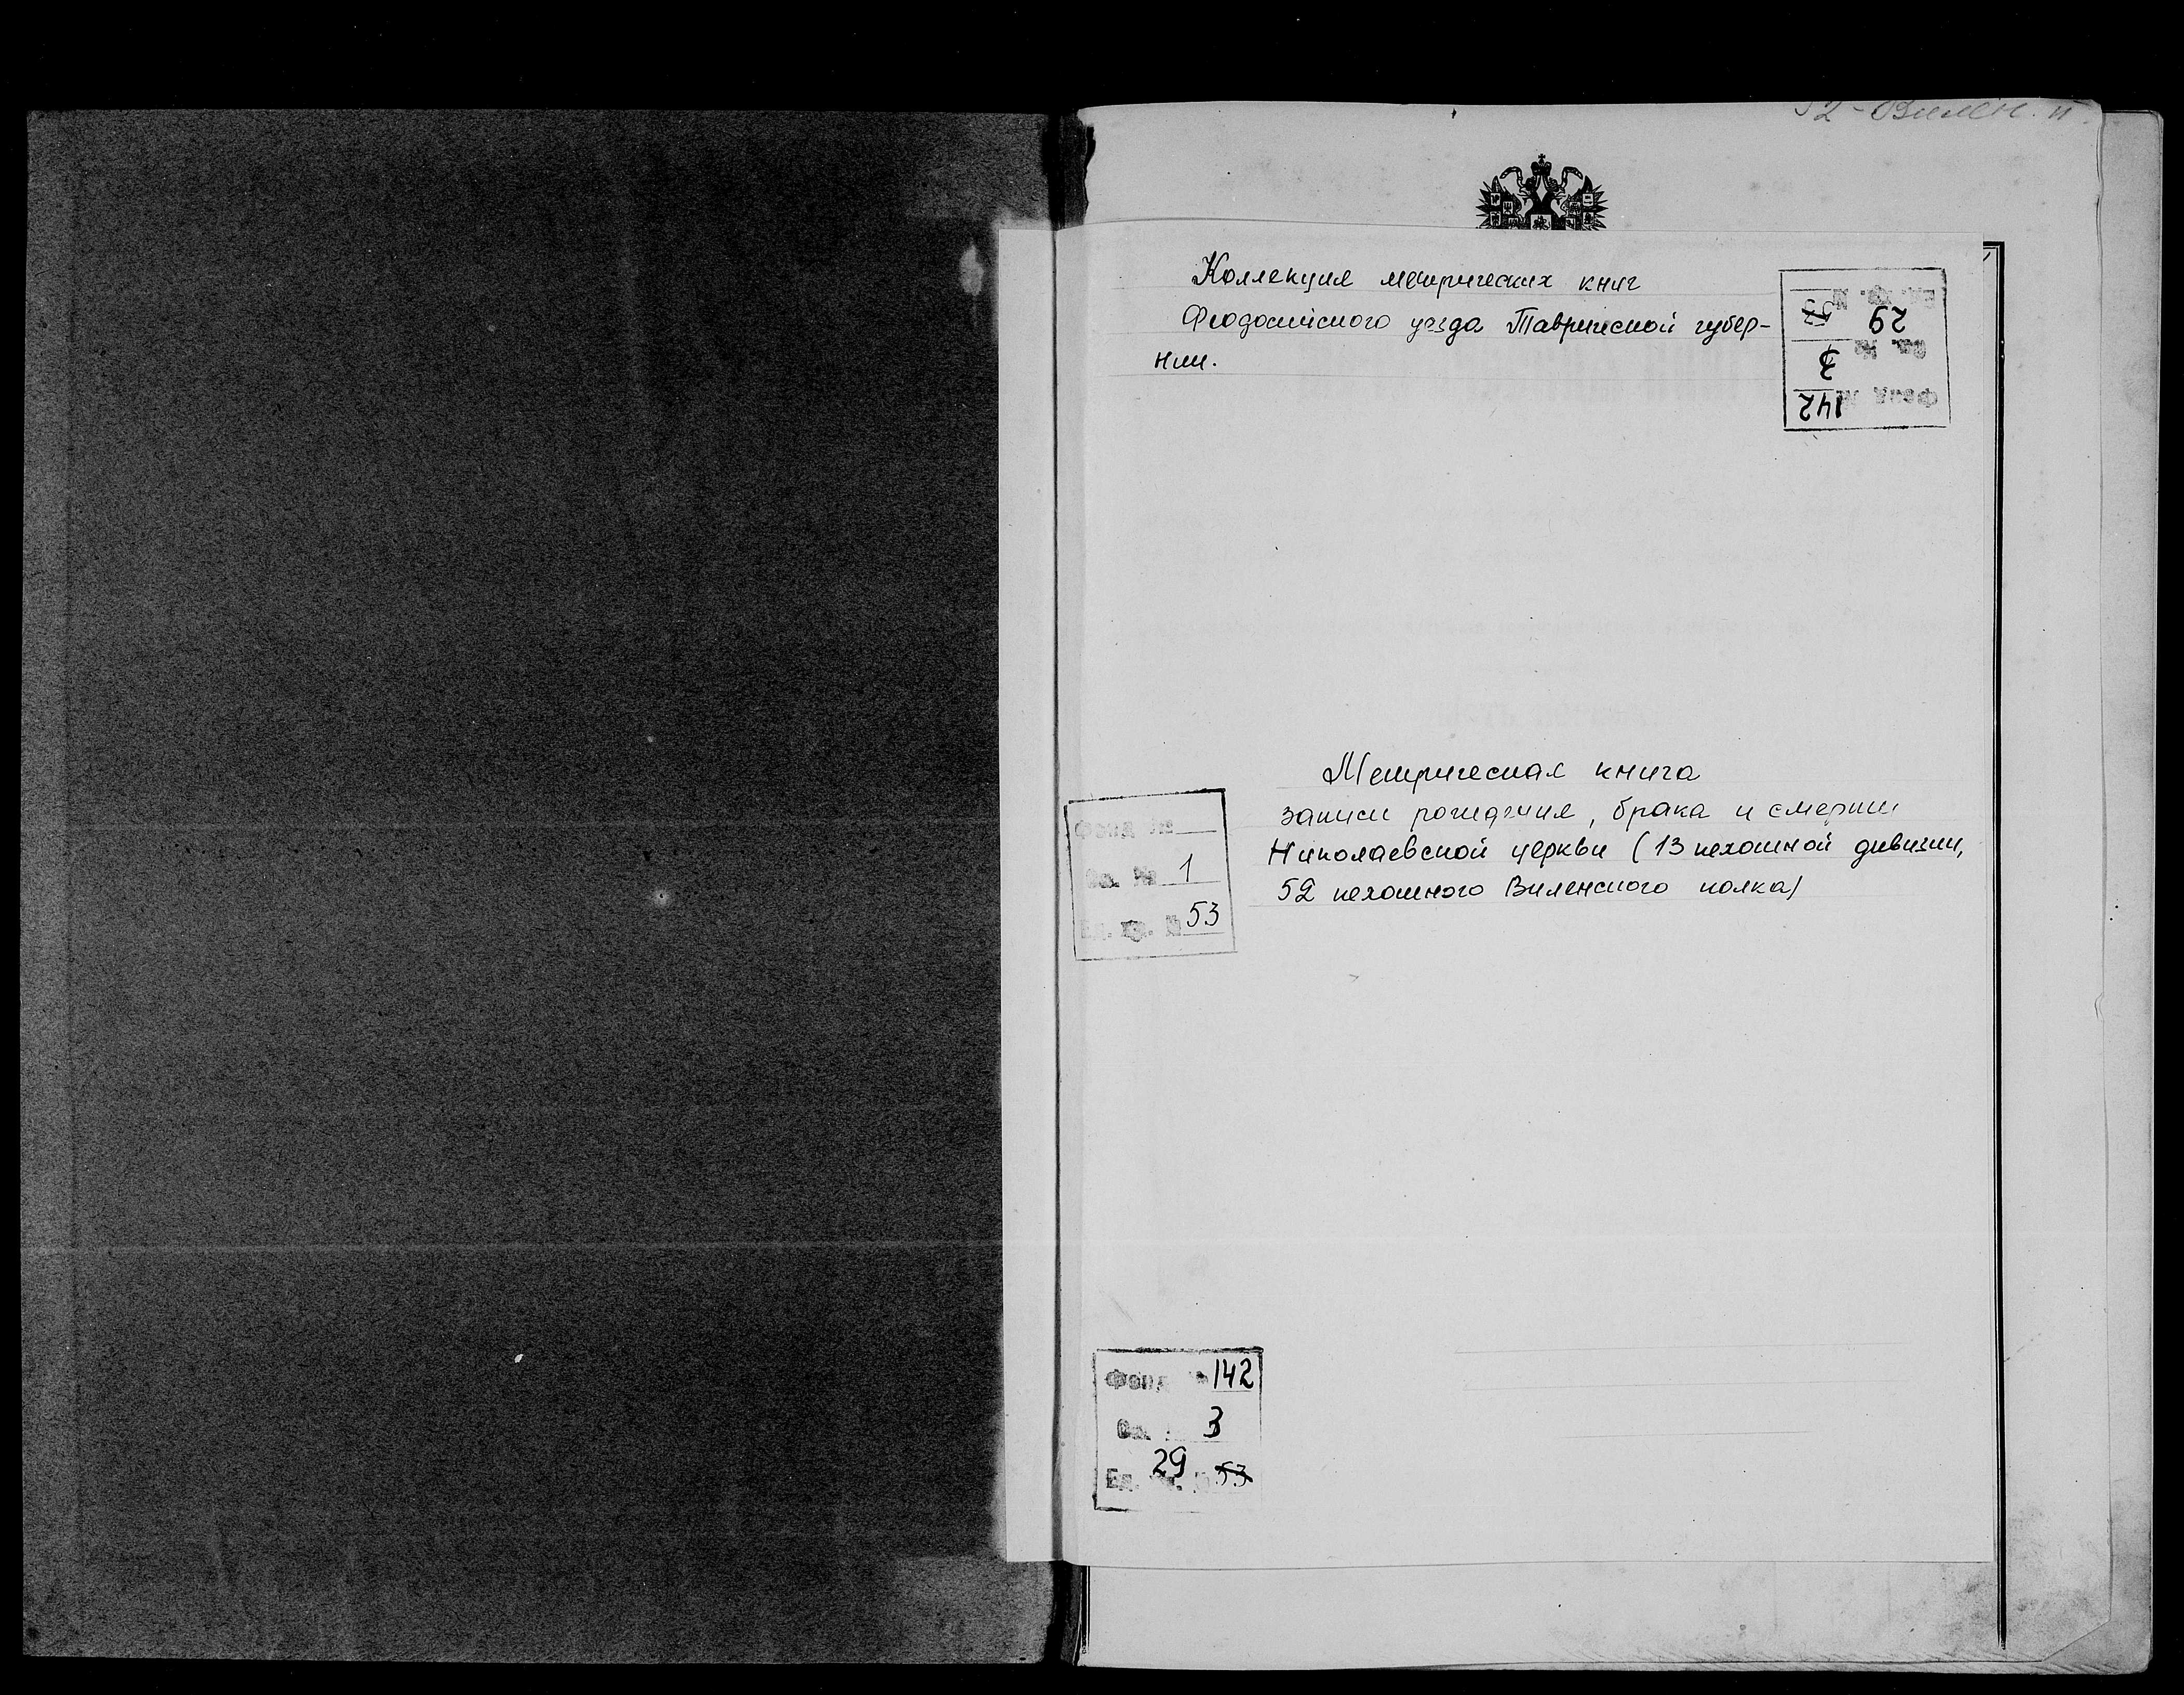 52 - Вилен. п.
Коллекция метрических книг
Феодосийского уезда Таврической губер-
нии.
Ед. хр. № 53 29
Оп. № 3
Фонд № 142
Метрическая книга
записи рождения, брака и смерти
Николаевской церкви (13 пехотной дивизии,
52 пехотного Виленского полка)
Фонд №
Оп. № 1
Ед. хр. № 53
Фонд № 142
Оп. № 3
Ед. хр. № 29 53